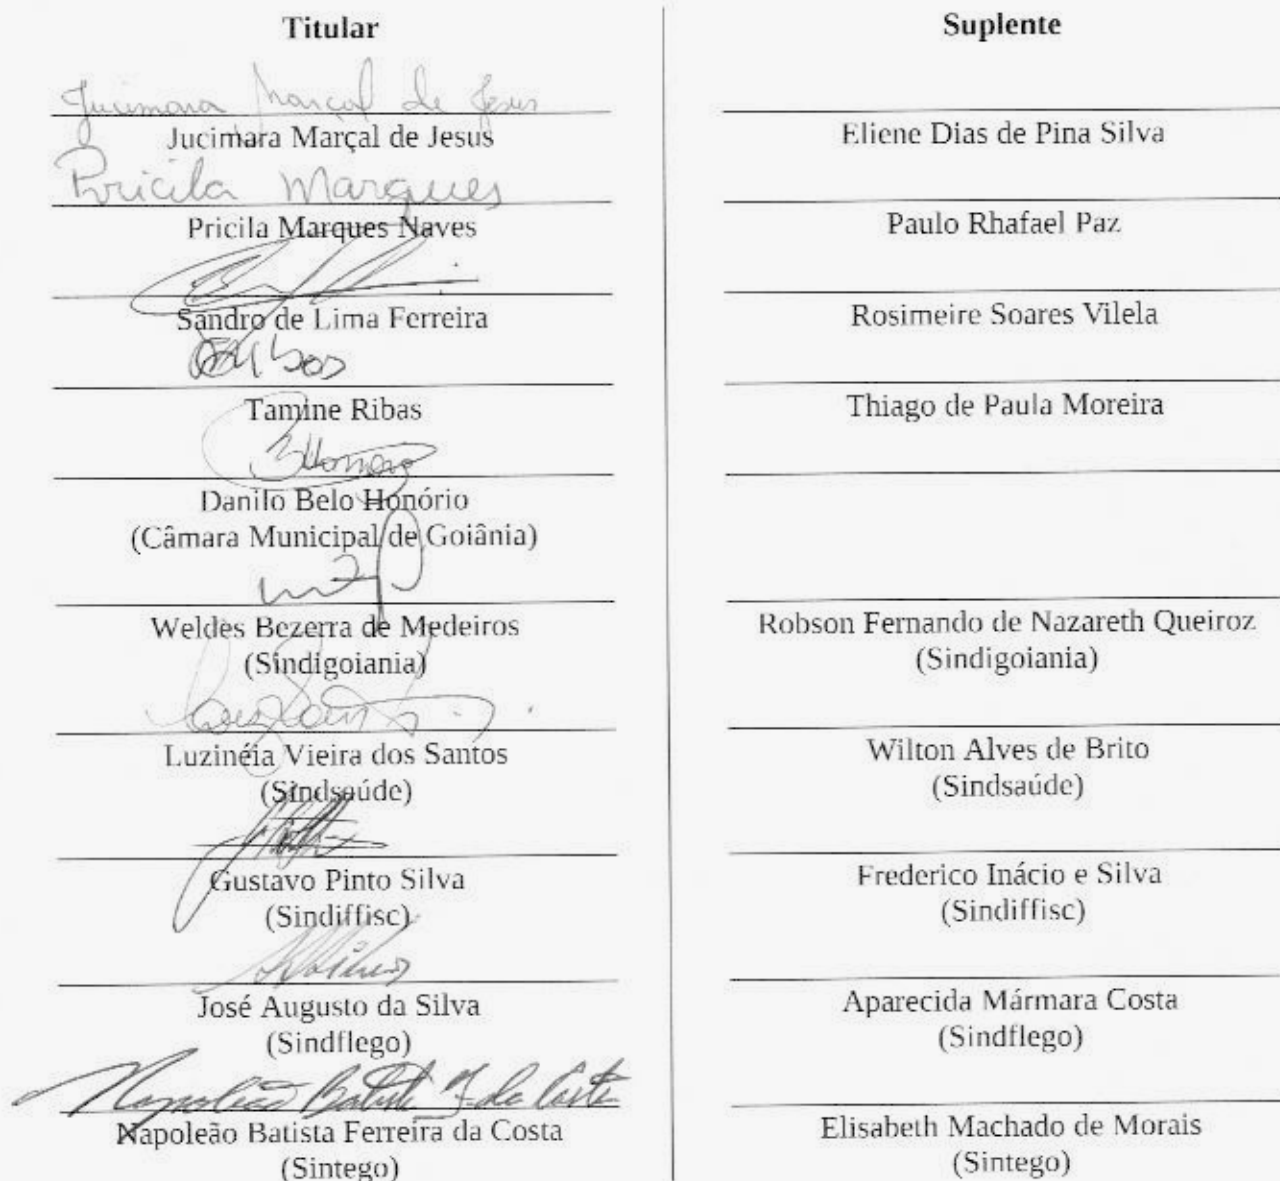 Titular
Jucimara Marçal de Jesus
Jucimara Marçal de Jesus
Pricila Marques
Pricila Marques Naves
Sandro de Lima Ferreira
Tamine Ribas
Danilo Belo Honório
(Câmara Municipal de Goiânia)
Weldes Bezerra de Medeiros
(Sindigoiania)
Luzinéia Vieira dos Santos
(Sindsaúde)
Gustavo Pinto Silva
(Sindiffisc)
José Augusto da Silva
(Sindflego)
Napoleão Batista F. da Costa
Napoleão Batista Ferreira da Costa
(Sintego)
Suplente
Eliene Dias de Pina Silva
Paulo Rhafael Paz
Rosimeire Soares Vilela
Thiago de Paula Moreira
Robson Fernando de Nazareth Queiroz
(Sindigoiania)
Wilton Alves de Brito
(Sindsaúde)
Frederico Inácio e Silva
(Sindiffisc)
Aparecida Mármara Costa
(Sindflego)
Elisabeth Machado de Morais
(Sintego)